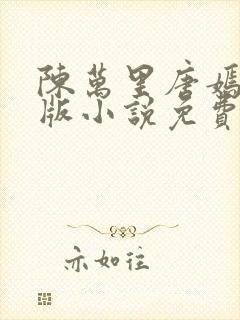 陳萬里唐嫣
版小說免費
亦如往